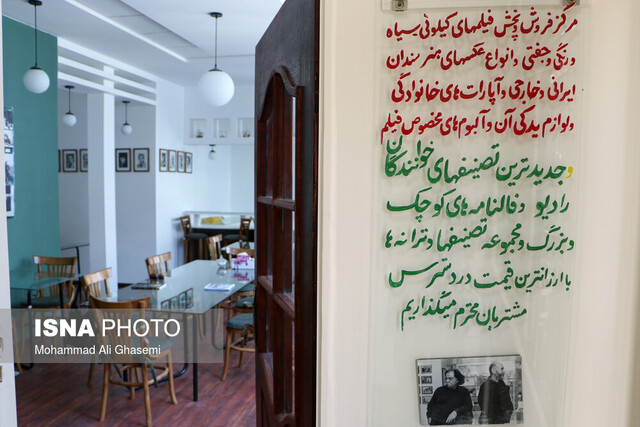 مرکز فروش پخش فیلمهای کیلوئی سیاه
و رنگی و جفتی و انواع عکسهای هنرمندان
ایرانی و خارجی و آپارات های خانوادگی
و لوازم یدکی آن و آلبوم های مخصوص فیلم
و جدیدترین تصنیفهای خوانندگان
رادیو و فالنامه های کوچک
و بزرگ و مجموعه تصنیفها و ترانه ها
با ارزانترین قیمت در دسترس
مشتریان محترم میگذاریم
ISNA PHOTO
Mohammad Ali Ghasemi